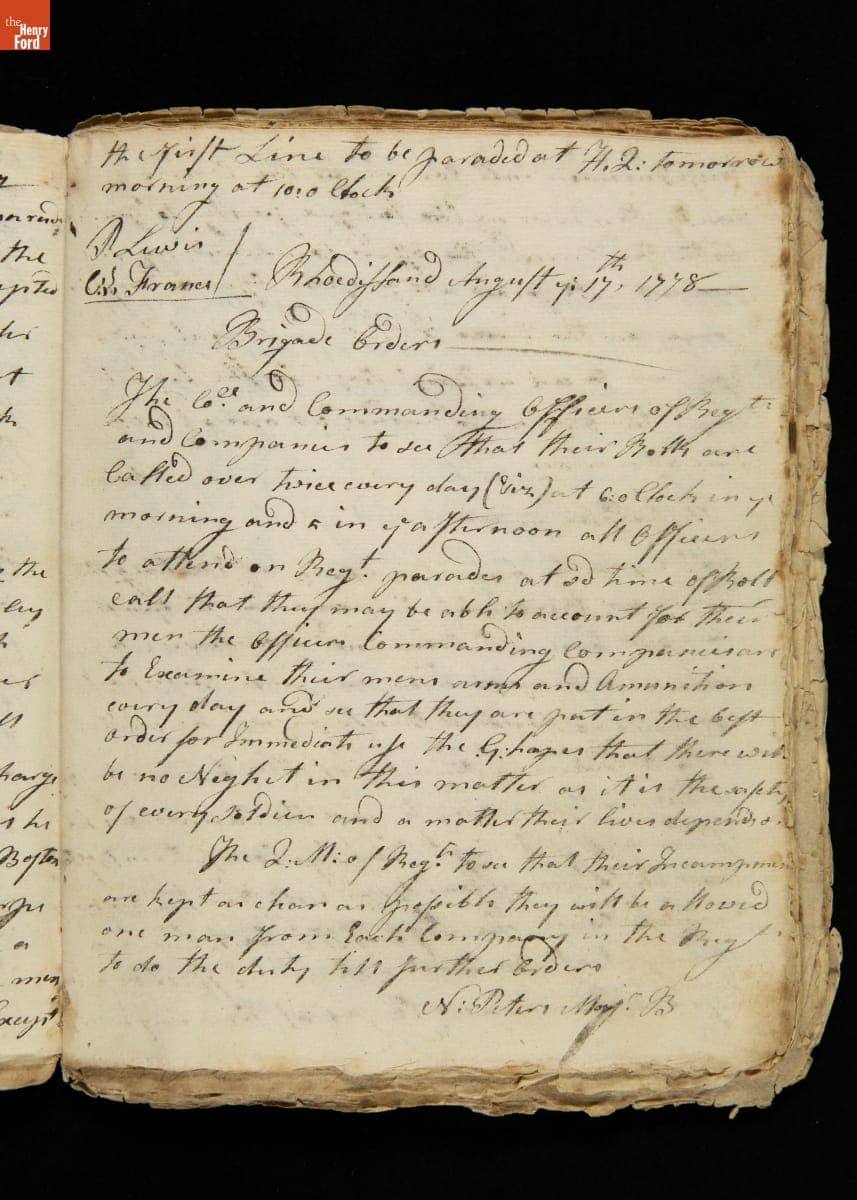 the Henry Ford
the first Line to be paraded at H. Q: tomorrow
morning at 10:o Clock
P Lewis
C:S. Frances
Rhoedissand August ye: 17th, 1778
Brigade Orders
The Cols. and Commanding Officers of Regts
and Companies to see that their Rolls are
Called over twice every day (Viz) at 6:o Clock in ye
morning and 5 in ye afternoon all Officers
to attend on Regt. parades at sd time of Roll
call that they may be able to account for their
men the Officers Commanding Companies are
to Examine their mens arms and Amunition
every day and see that they are put in the best
order for Immediate use the G: hopes that there will
be no Neglet in this matter as it is the safety
of every soldier and a matter their lives depends on
The Q: M: of Regts. to see that their Incampment
are kept as clean as possible they will be allowed
one man from Each Company in the Regt
to do the duty till further Orders
N: Peters Majr. B
the
the
a
men
Boston
Except